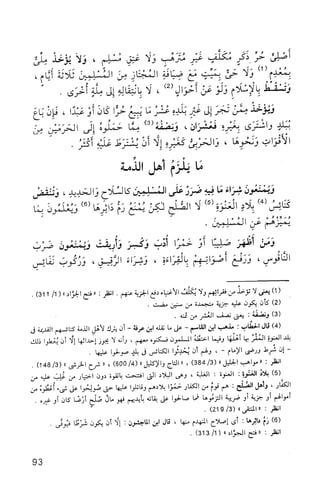 أَصْلِيٌّ حُرٌّ ذَكَرٍ مُكَلَّفٍ غَيْرِ مُتَرَهِّبٍ وَلَا عَتِيقِ مُسْلِمٍ ، وَلَا يُؤْخَذُ مِنْ
بِمُعْدِمٍ (1) وَلَا حَيٍّ بِمَيِّتٍ مَعَ ضِيَافَةِ الْمُجْتَازِ مِنَ الْمُسْلِمِينَ ثَلَاثَةَ أَيَّامٍ ،
وَتَسْقُطُ بِالْإِسْلَامِ وَلَوْ عَنْ أَحْوَالٍ (2) ، لَا بِانْتِقَالِهِ إِلَى مِلَّةٍ أُخْرَى .
وَيُؤْخَذُ مِمَّنْ تَجَرَ إِلَى غَيْرِ بَلَدِهِ عُشْرُ مَا يَبِيعُ حُرًّا كَانَ أَوْ عَبْدًا ، فَإِنْ بَاعَ
بِبَلَدٍ وَاشْتَرَى بِغَيْرِهِ فَعُشْرَانِ ، وَنِصْفُهُ (3) مِمَّا حَمَلُوهُ إِلَى الْحَرَمَيْنِ مِنَ
الْأَقْوَاتِ وَنَحْوِهَا ، وَالْحَرْبِيُّ كَغَيْرِهِ إِلَّا أَنْ يُشْتَرَطَ عَلَيْهِ أَكْثَرُ .
مَا يَلْزَمُ أَهْلَ الذِّمَّة
وَيُمْنَعُونَ شِرَاءَ مَا فِيهِ ضَرَرٌ عَلَى الْمُسْلِمِينَ كَالسِّلَاحِ وَالْحَدِيدِ ، وَتُنْقَضُ
كَنَائِسُ (4) بِلَادِ الْعَنْوَةِ (5) لَا الصُّلْحِ لَكِنْ يُمْنَعُ رَمُّ دَاثِرِهَا (6) وَيُعْلَمُونَ بِمَا
يُمَيِّزُهُمْ عَنِ الْمُسْلِمِينَ .
وَمَنْ أَظْهَرَ صَلِيبًا أَوْ خَمْرًا أُدِّبَ وَكُسِرَ وَأُرِيقَتْ وَيُمْنَعُونَ ضَرْبَ
النَّاقُوسِ ، وَرَفْعَ أَصْوَاتِهِمْ بِالْقِرَاءَةِ ، وَشِرَاءَ الرَّقِيقِ ، وَرُكُوبَ نَفَائِسِ
(1) يعني لا تؤخذ من فقرائهم ولا يُكلَّف الأغنياء دفع الجزية عنهم . انظر : «فتح الجوَّاد» (1/ 311) .
(2) كأن يكون عليه جزية متجمدة من سنين مضت .
(3) ونصفُهُ : يعني نصف العشر من ثمنه .
(4) قال الحَطَّاب : مذهب ابن القاسم - على ما نقله ابن عرفة - أن يترك لأهل الذمة كنائسهم القديمة في
بلد العنوة المُقَرِّ بها أهلُها وفيما اختطَّهُ المسلمون فسكنوه معهم ، وأنه لا يجوز إحداثها إلَّا أن يُعْطَوا ذلك
- إن شرط ورضي الإمام - ، ولهم أن يُحدِثُوا الكنائس في بلدٍ صولحوا عليها .
انظر : «مواهب الجليل» (3/ 384) ، «التاج والإكليل» (4/ 600) ، «شرح الخرشي» (3/ 148) .
(5) بلاد العَنْوَة : العنوة : الغلبة ، وهي البلاد التي افتتحت بالقوة دون اختيار من غُلِبَ عليه من
الكفَّار ، وأهل الصُّلح : هم قوم من الكفار حَمَوْا بلادهم وقاتلوا عليها حتى صُولِحوا على شيءٍ أُعْطُوهُ من
أموالهم أو جزية أو ضريبة التزموها فما صالحوا على بقائه بأيديهم فهو مالُ صُلْحٍ أرضًا كان أو غيره .
انظر : «المنتقى» (3/ 219) .
(6) رَمُّ دَاثِرها : أي إصلاح المنهدم منها ، قال ابن الماجشون : إلَّا أن يكون شَرْطًا فيُوفَى .
انظر : «فتح الجوَّاد» (1/ 313) .
93